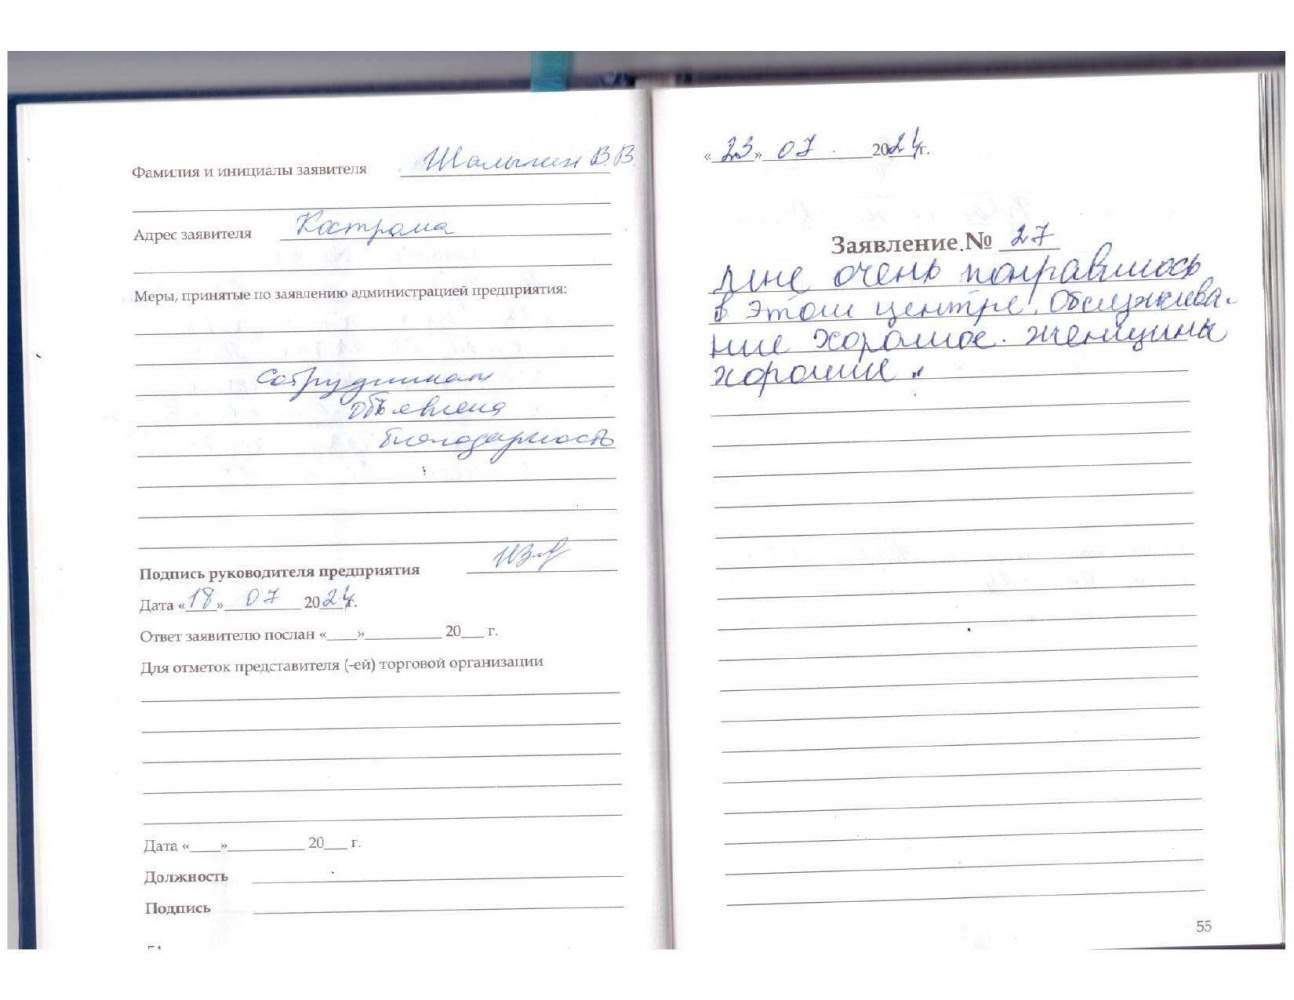 Фамилия и инициалы заявителя Шалыгин В.В.
Адрес заявителя Кострома
Меры, принятые по заявлению администрацией предприятия:
сотрудникам
объявлена
благодарность
Подпись руководителя предприятия
Дата «18» 07 2024г.
Ответ заявителю послан «___»__________ 20___ г.
Для отметок представителя (-ей) торговой организации
Дата «____»__________ 20___ г.
Должность
Подпись
«23» 07. 2024г.
Заявление №27
Мне очень понравилось
в этом центре. Обслужива-
ние хорошое. женщины
хорошие.
55